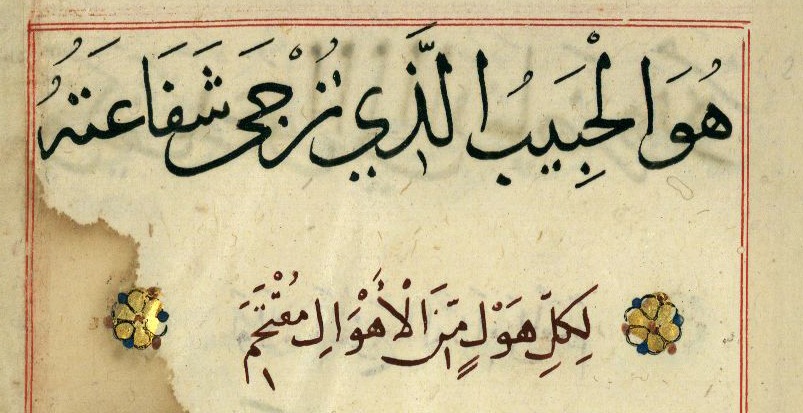 هُوَ الْحَبِيبُ الَّذِي تُرْجَى شَفَاعَتُهُ
لِكُلِّ هَوْلٍ مِّنَ الْأَهْوَالِ مُقْتَحَمِ